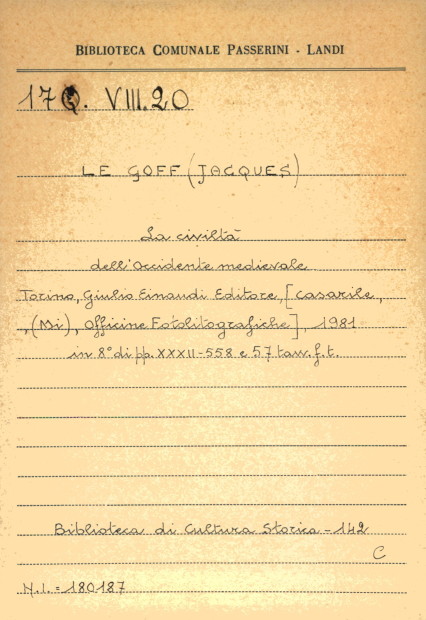 BIBLIOTECA COMUNALE PASSERINI - LANDI
VIII.20
LE GOFF (JACQUES)
La civiltà
dell'Occidente medievale
Torino, Giulio Einaudi Editore, [Casarile,
(Mi), Officine Fotolitografiche], 1981
in 8° di pp. XXXII-558 e 57 tavv. f.t.
Biblioteca di Cultura Storica - 142
C
N.I. = 180187